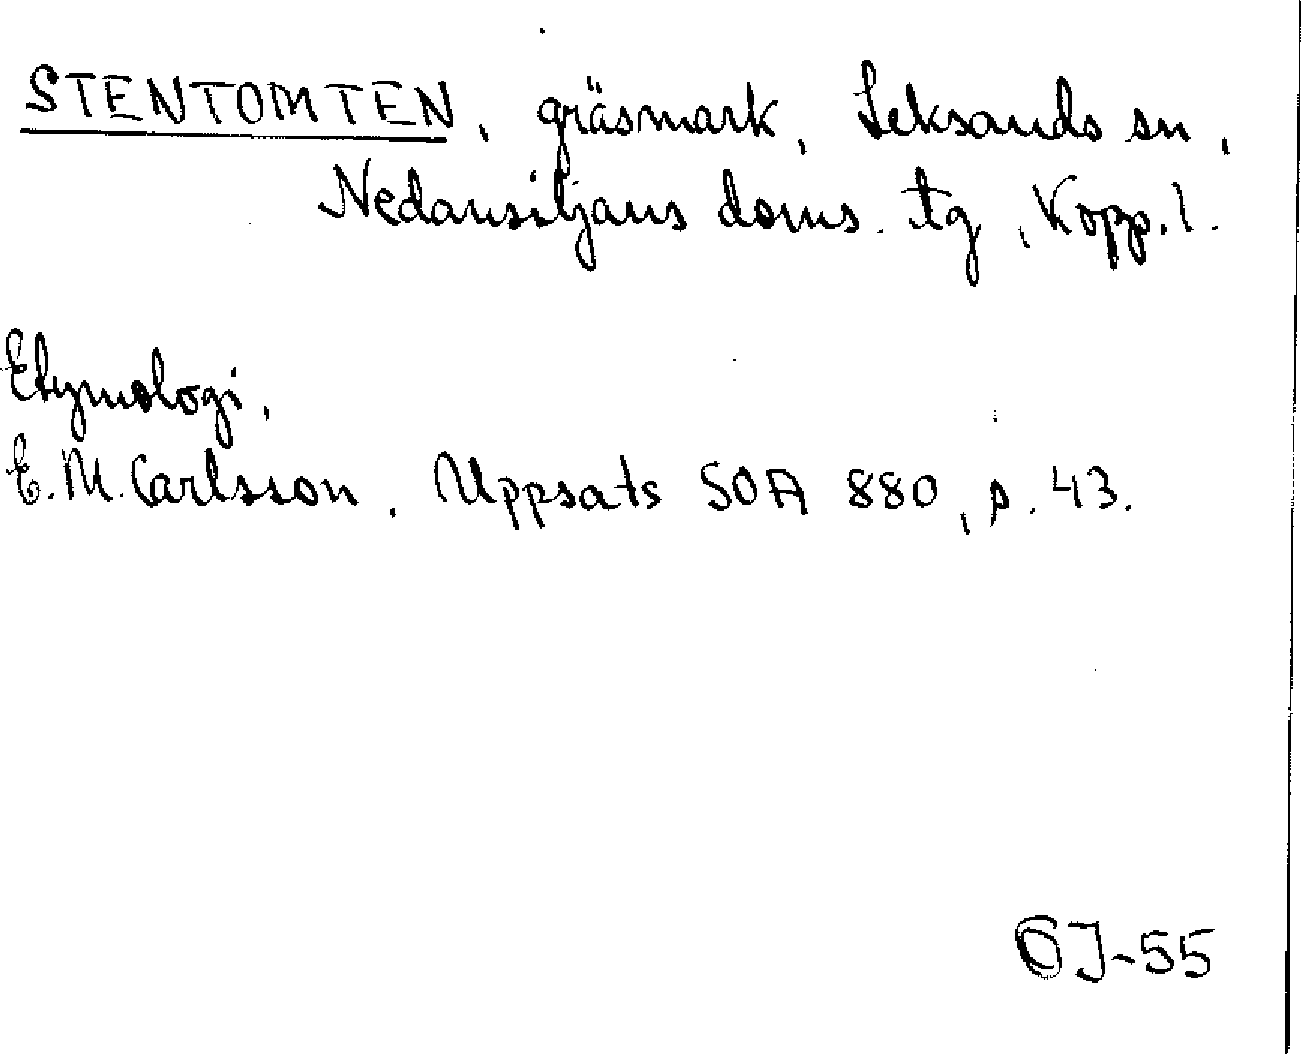 STENTOMTEN, gräsmark, Leksands sn,
Nedansiljans doms. tg, Kopp. l.
Etymologi,
E. M. Carlsson. Uppsats SOA 880, s. 43.
GJ-55